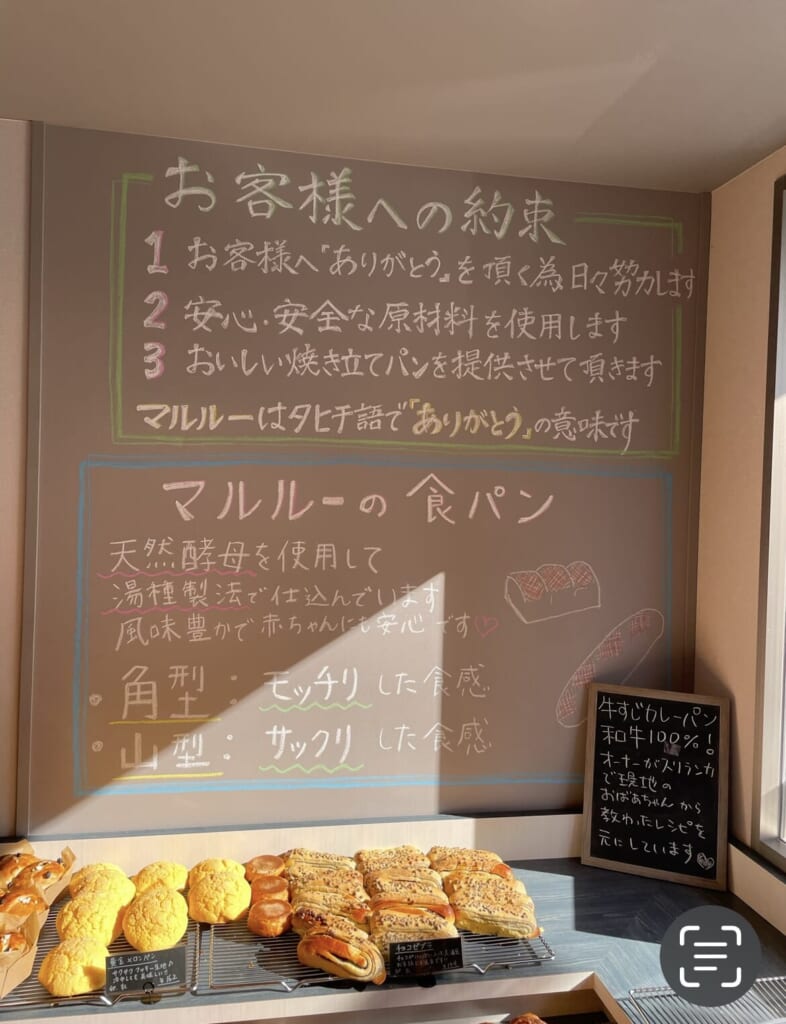 お客様への約束
1 お客様へ『ありがとう』を頂く為日々努力します
2 安心・安全な原材料を使用します
3 おいしい焼き立てパンを提供させて頂きます
マルルーはタヒチ語で『ありがとう』の意味です
マルルーの食パン
天然酵母を使用して
湯種製法で仕込んでいます
風味豊かで赤ちゃんにも安心です♡
角型：モッチリした食感
山型：サックリした食感
牛すじカレーパン
和牛100%！
オーナーがスリランカ
で現地の
おばあちゃんから
教わったレシピを
元にしています♡
メロンパン
サクサククッキー生地♪